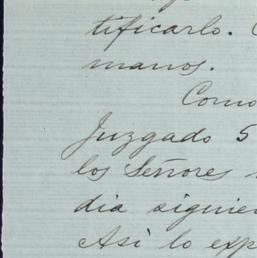 tificarlo.
manos.
Como
Juzgado 5
los Señores
dia siguien
Asi lo exp